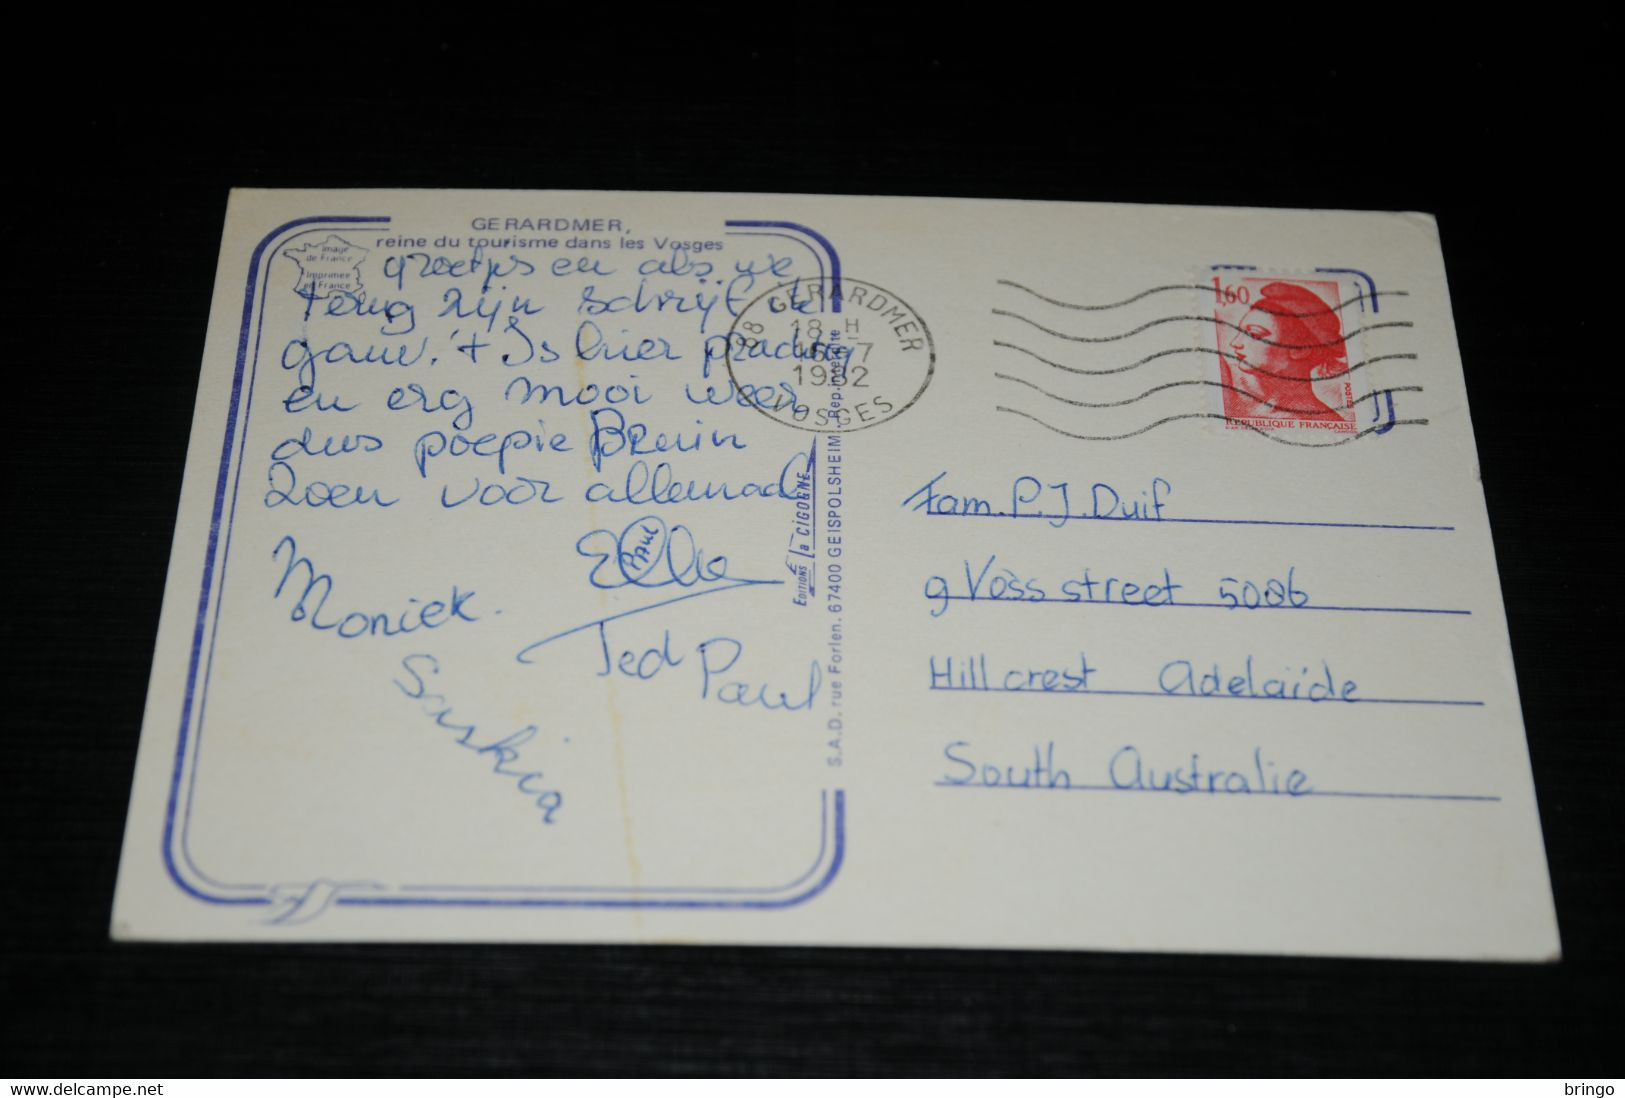 GERARDMER,
reine du tourisme dans les Vosges
Image
de France
Imprimée
en France
groetjes en als we
terug zijn schrijf ik
gauw. 't Is hier prachtig
en erg mooi weer
dus poepie Bruin
Zoen voor allemaal
Elba
PAUL
Moniek.
Ted Paul
Saskia
EDITIONS la CIGOGNE
S.A.D. rue Forlen. 67400 GEISPOLSHEIM. Rep. interdite
88 GERARDMER
18 H
15-7
1982
VOSGES
1,60
POSTES
REPUBLIQUE FRANÇAISE
Fam. P.J. Duif
9 Voss street 5086
Hillcrest Adelaïde
South Australie
bringo
www.delcampe.net